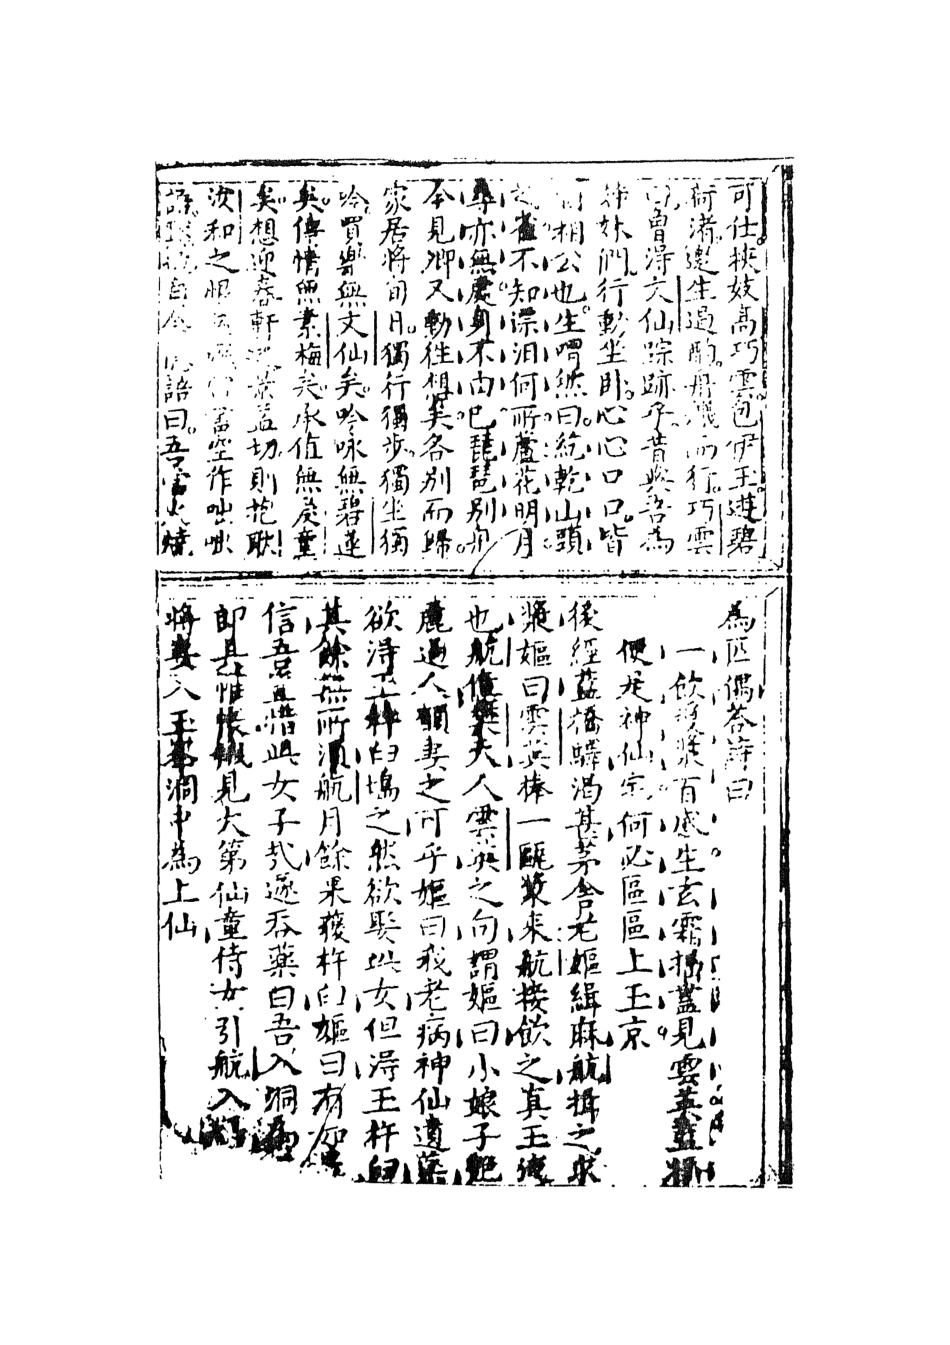 可仕挾妓高巧雲包伊玉遊碧
荷渚邀生過酌舟議而行巧雲
曰曾得六仙踪跡乎昔與吾為
姊妹們行動坐臥心心口口皆
相公也生喟然曰紇乾山頭
之雀不知淙泪何所蘆花明月
尋亦無處身不由巳琵琶別舟
今見卿又動徃想矣各別而歸
家居將旬月獨行獨步獨坐獨
吟買樂無文仙矣吟咏無碧蓮
矣傳情無素梅矣承值無炭童
矣想迎春軒景益切則抱耿
汝和之恨空作咄咄
語曰吾當火燒
為匹偶答詩曰
一飲瓊漿百感生玄霜搗盡見雲英藍橋
便是神仙宅何必區區上玉京
後經藍橋驛渴甚茅舍老嫗緝麻航揖之求
漿嫗曰雲英棒一甌漿來航接飲之真玉液
也航憶樊夫人雲英之句謂嫗曰小娘子艷
麗過人願妻之可乎嫗曰我老病神仙遺藥
欲得玉杵臼搗之然欲娶此女但得玉杵臼
其餘無所須航月餘果獲杵臼嫗曰有如
信吾豈惜此女子哉遂吞藥曰吾入洞為
即具惟帳俄見大第仙童侍女引航入
將妻入玉峯洞中為上仙